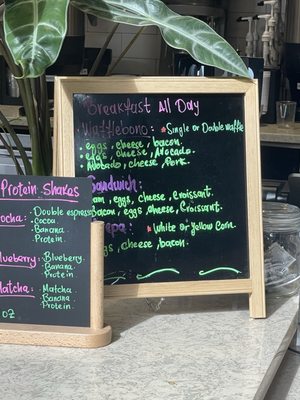 Breakfast All Day
Wafflebono: * Single or Double Waffle
• eggs, cheese, bacon.
• eggs, cheese, Avocado.
• Avocado, cheese, Pork.
Sandwich:
eggs, cheese, Croissant.
Bacon, eggs, cheese, Croissant.
* White or Yellow Corn.
eggs, cheese, bacon.
Protein Shakes
Double espresso
Cocoa
Banana
Protein.
Blueberry.
Banana
Protein.
Matcha:
Matcha.
Banana
Protein
OZ